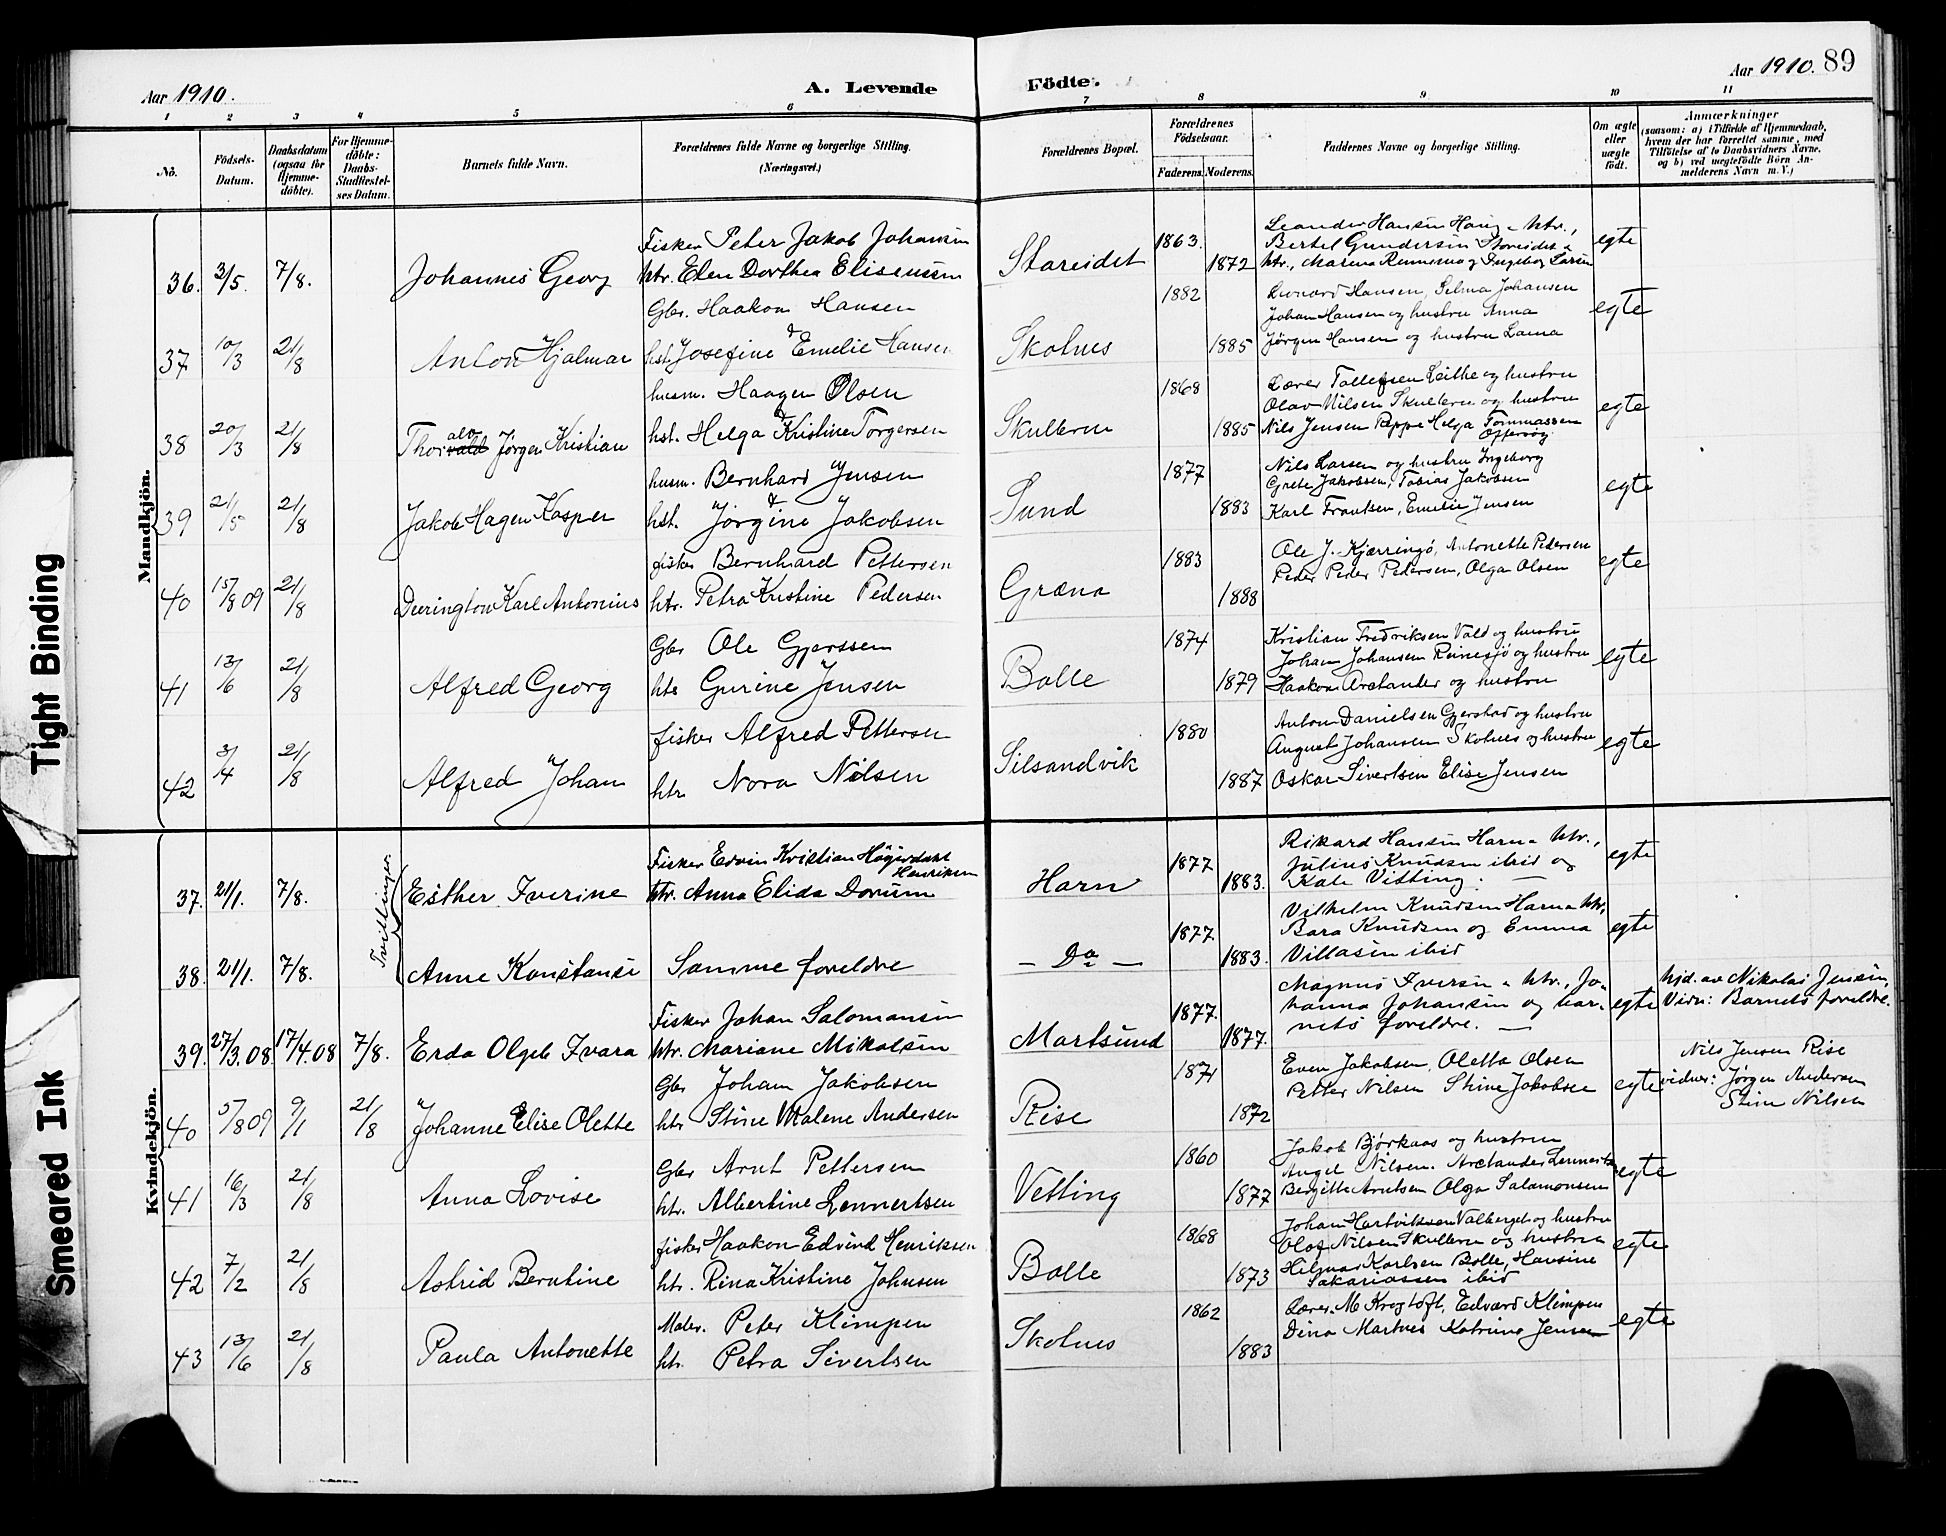 Aar 1910. A. Levende Födte. Aar 1910. 89
1 2 3 4 5 6 7 8 9 10 11
No.
Födsels-Datum.
Daabsdatum (ogsaa for Hjemme-döbte).
For Hjemme-döbte: Daabs-Stadfæstel-ses Datum.
Barnets fulde Navn.
Forældrenes fulde Navne og borgerlige Stilling. (Næringsvei.)
Forældrenes Bopæl.
Forældrenes Födselsaar.
Faderens. Moderens.
Faddernes Navne og borgerlige Stilling.
Om ægte eller uægte født.
Anmærkninger
(saasom: a) i Tilfælde af Hjemmedaab,
hvem der har forrettet samme, med
Tilföielse af to Daabsvidners Navne,
og b) ved uægtefödte Börn An-
melderens Navn m. V.)
Mandkjön.
Fisker Peter Jakob Johansen 1863. Leander Hansen Haug & htr., egte
36. 3/5. 7/8. Johannes Georg htr. Elen Dorthea Eliseussen Stareidet 1872 Bertel Gundersen Storeidet &
htr., Marena Rennemo og Ingeborg Larsen
Gbr. Haakon Hansen 1882 Leonard Hansen, Selma Johansen egte
Johan Hansen og hustru Anna
37 10/3 21/8 Anton Hjalmar hst. Josefine Emelie Hansen Skotnes 1885 Jörgen Hansen og hustru Laura
husm. Haagen Olsen 1868 Lærer Tollefsen Leithe og hustru
Olav Nilsen Skulleren og hustru egte
38 20/3 21/8 Thorvald alv Jörgen Kristian hst. Helga Kristine Torgersen Skulleren 1885 Nils Jensen Peppe Helga Tommassen
Offersöy
husm. Bernhard Jensen 1877 Nils Larsen og hustru Ingeborg
Grete Jakobsen, Tobias Jakobsen egte
39 21/5 21/8 Jakob Hagen Kasper hst. Jörgine Jakobsen Sund 1883 Karl Frantsen, Emelie Jensen
fisker Bernhard Pettersen 1883 Ole J. Kjærringö, Antonette Pedersen
Peder Peder Pedersen, Olga Olsen egte
40 15/8 09 21/8 Deerington Karl Antonius htr. Petra Kristine Pedersen Græna 1888
Gbr Ole Gjerssen 1874 Kristian Fredriksen Vold og hustru
Johan Johansen Reinesjö og hustru egte
41 13/6 21/8 Alfred Georg htr Gurine Jensen Bolle 1879 Haakon Arctander og hustru
fisker Alfred Pettersen 1880 Anton Danielsen Gjerstad og hustru
August Johansen Skotnes og hustru egte
42 3/4 21/8 Alfred Johan htr Nora Nilsen Silsandvik 1887 Oskar Sivertsen Elise Jensen
Kvindekjön.
Tvillinger
Fisker Edvin Kristian Högerdahl Henriksen 1877 Rikard Hansen Harna htr.,
Julius Knudsen ibid og egte
37. 21/1. 7/8. Esther Iverine htr. Anna Elida Dorum Harn 1883. Kate Vitting.
1877 Vilhelm Knudsen Harna htr,
Bara Knudsen og Emma egte
38. 21/1. 7/8. Anne Konstanse Samme foreldre - Do - 1883. Villasen ibid
Fisker Johan Salomonsen 1877. Magnus Iversen & htr., Jo- hjd. av Nikolai Jensen,
hanna Johansen og bar- egte Vidn: Barnets foreldre.
39. 27/3.08. 17/4.08 7/8. Erda Olgeb Ivara htr. Mariane Mikalsen Martsund 1877. nets foreldre.
Gbr Johan Jakobsen 1871 Even Jakobsen, Oletta Olsen Nils Jensen Rise
Petter Nilsen Stine Jakobsen egte vidner: Jörgen Andersen
40 5/8 09 9/1 21/8 Johanne Elise Olette htr Stine Malene Andersen Rise 1872 Stine Nilsen
Gbr Arnt Pettersen 1860 Jakob Bjørkaas og hustru
Angel Nilsen. Arctander Lennerts egte
41 16/3 21/8 Anna Lovise htr. Albertine Lennertsen Vetting 1877 Bergitte Arntsen Olga Salamonsen
fisker Haakon Edvind Henriksen 1868 Johan Hartviksen Valberget og hustru
Olof Nilsen Skulleren og hustru egte
42 7/2 21/8 Astrid Berntine htr. Rina Kristine Johnsen Bolle 1873 Hilmar Karlsen Bolle, Hansine
Sakariassen ibid
Maler. Peter Klimpen 1862 Lærer. M Krogtoft, Edvard Klimpen egte
43 13/6 21/8 Paula Antonette htr. Petra Sivertsen Skotnes 1883 Dina Martnes Katrine Jensen
Tight Binding
Smeared Ink